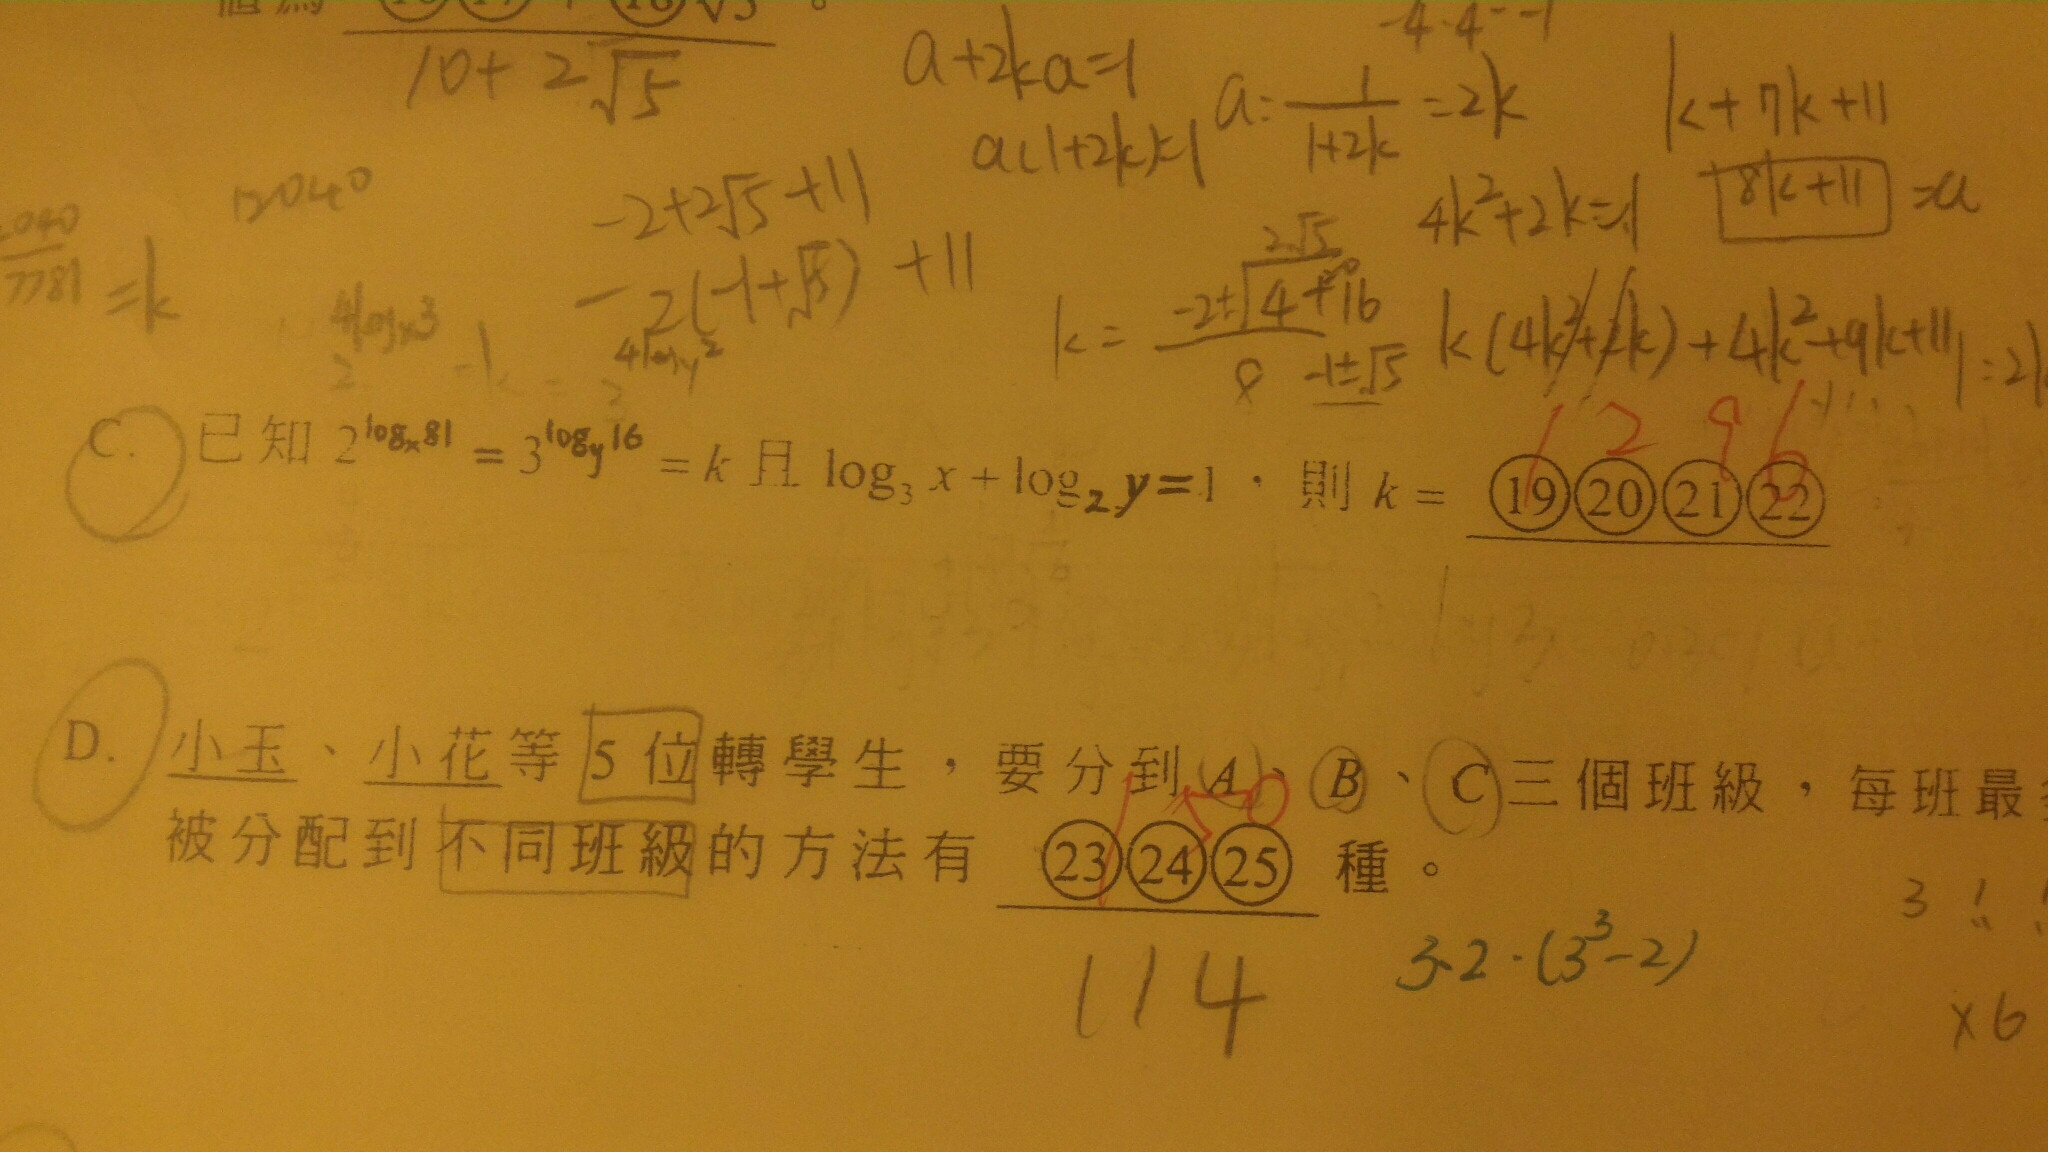 10+2√5
a+2ka=1
a(1+2k)=1
a=1/(1+2k)=2k
k+7k+11
12040
-2+2√5+11
4k²+2k=1
8k+11=a
7781=k
-2(-1+√5)+11
2√5
k=(-2±√(4+16))/8
-1±√5
k(4k²+2k)+4k²+9k+11
C. 已知 2^(logₓ81) = 3^(log_y16) = k 且 log₃ x + log₂ y = 1，則 k = ⑲⑳㉑㉒
1 2 9 6
D. 小玉、小花等 5 位轉學生，要分到 A、B、C 三個班級，每班最
被分配到不同班級的方法有 ㉓㉔㉕ 種。
1 5 0
114
3·2·(3³-2)
×6